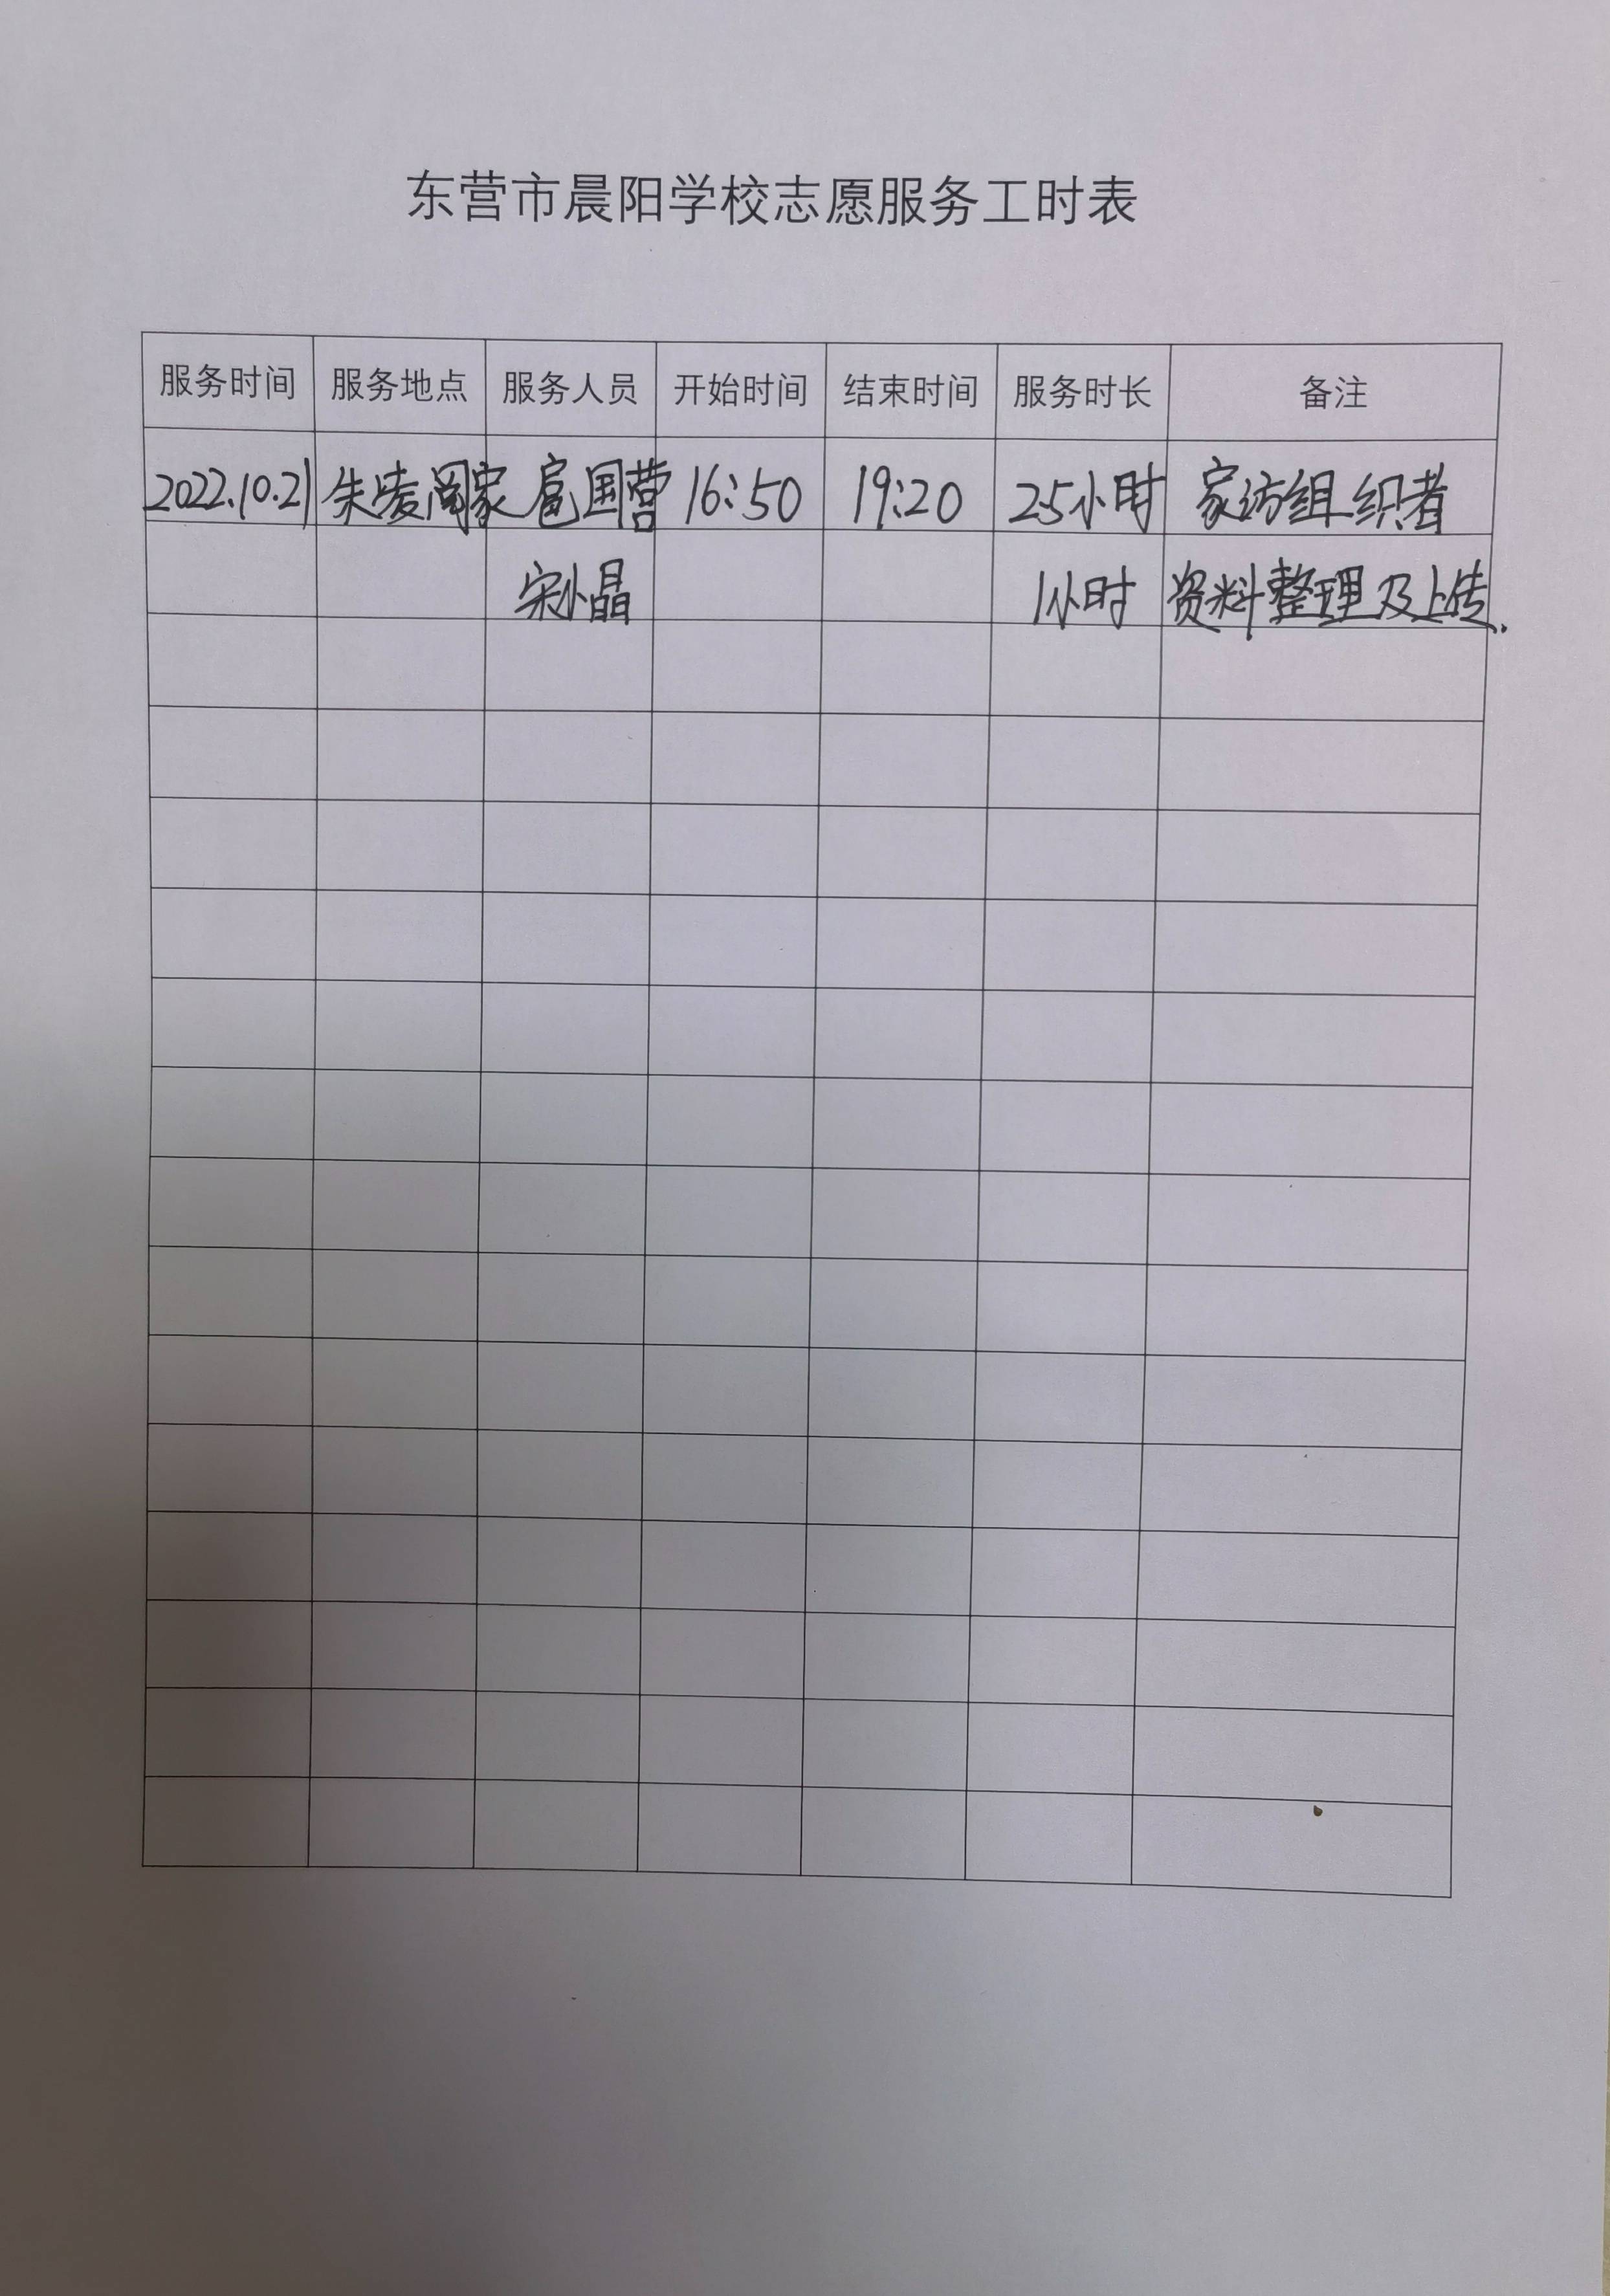 东营市晨阳学校志愿服务工时表
服务时间 服务地点 服务人员 开始时间 结束时间 服务时长 备注
2022.10.21 朱凌阁家 扈国营 16:50 19:20 25小时 家访组织者
宋小晶 1小时 资料整理及上传.